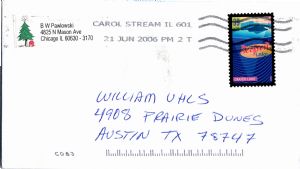 B W Pawlowski
4825 N Mason Ave
Chicago IL 60630 - 3170
CAROL STREAM IL 601
21 JUN 2006 PM 2 T
WILLIAM UHLS
4908 PRAIRIE DUNES
AUSTIN TX 78747